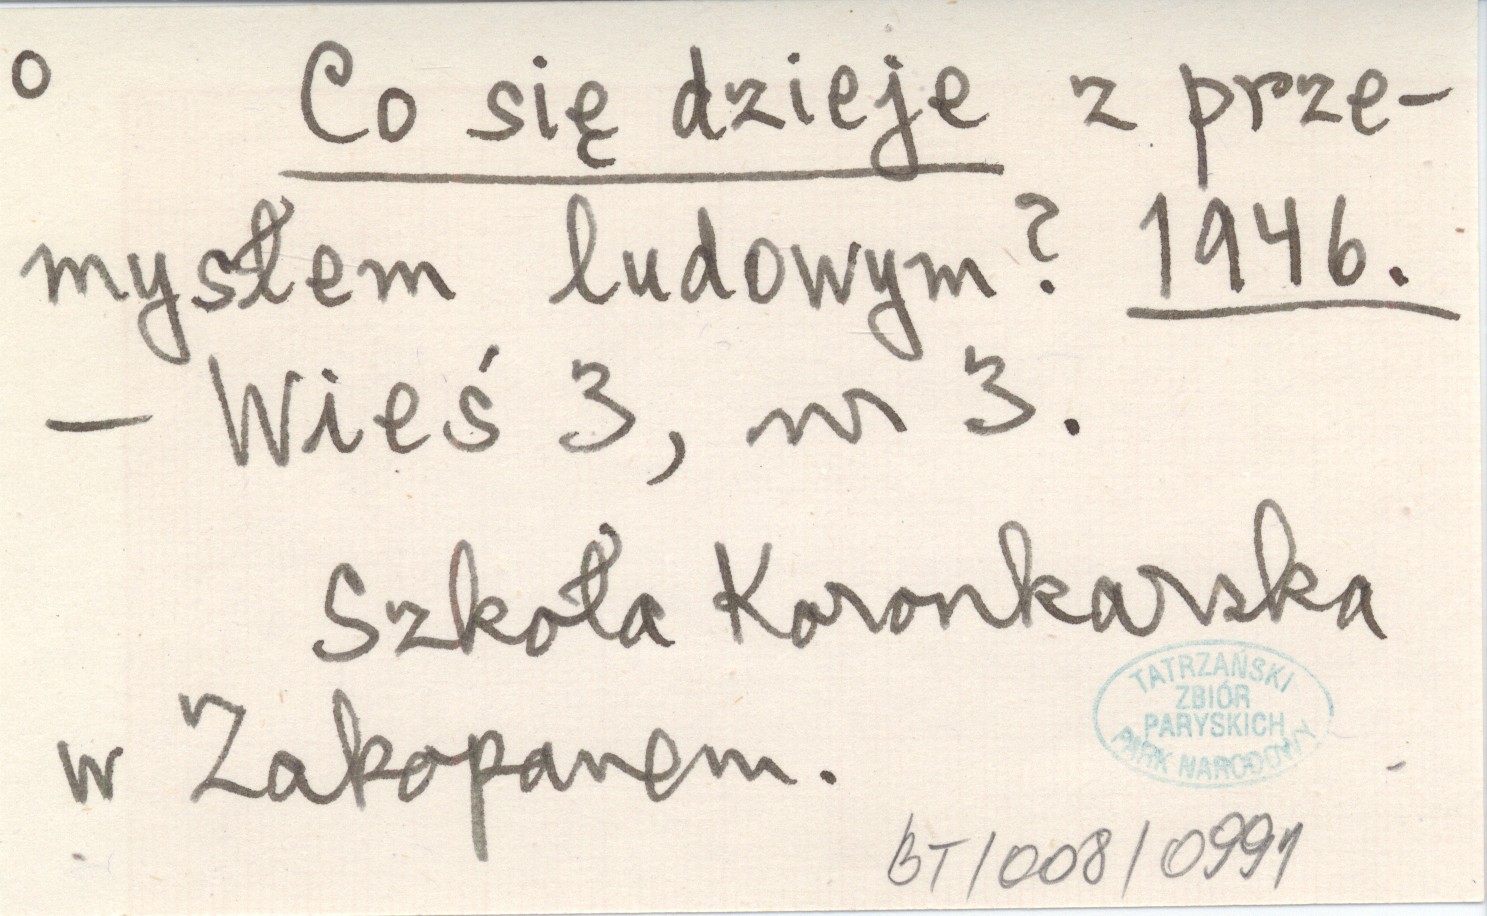 o Co się dzieje z prze-
mysłem ludowym? 1946.
— Wieś 3, nr 3.
Szkoła Koronkarska
w Zakopanem.
TATRZAŃSKI
ZBIÓR
PARYSKICH
PARK NARODOWY
BT/008/0991